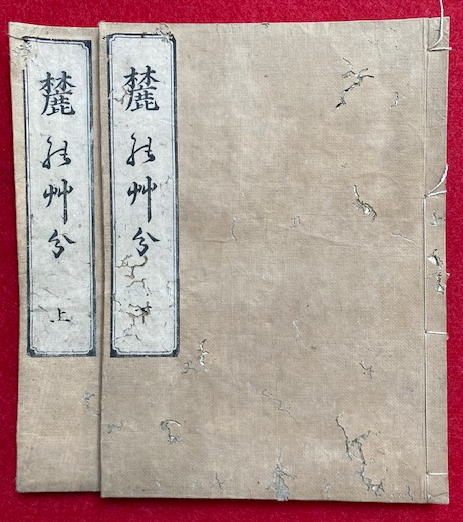 麓能艸分 下
麓能艸分 上